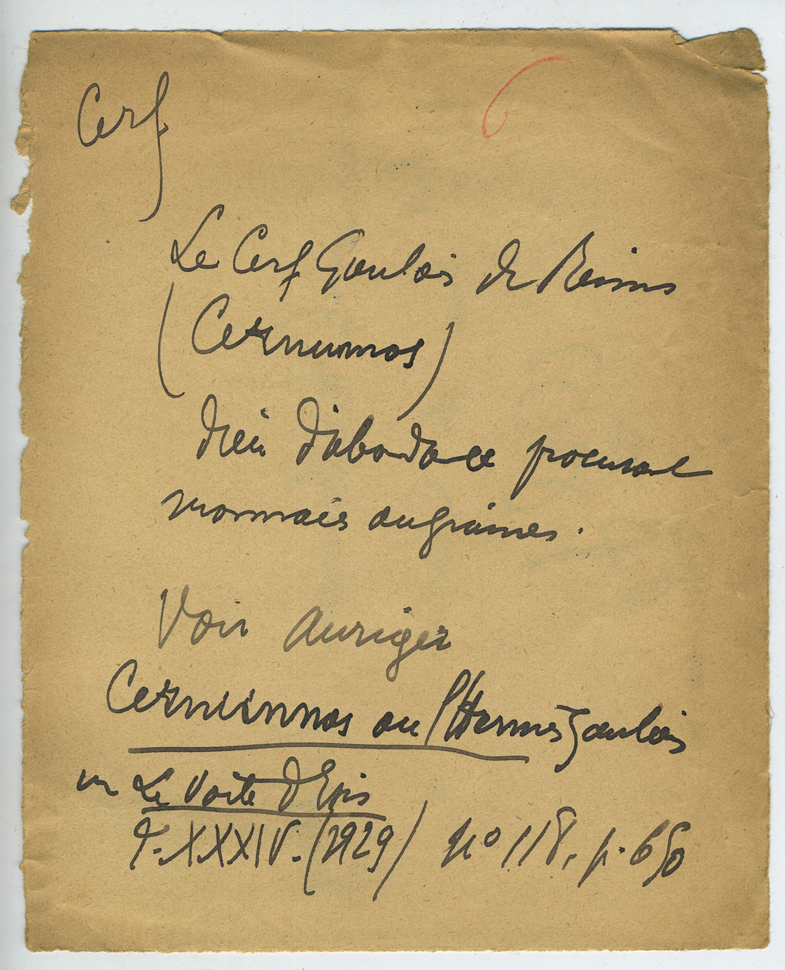 Cerf
Le Cerf Gaulois de Reims
(Cernunnos)
dieu d'abondance procurant
monnaies ou graines.
Voir Auriger
Cernunnos ou l'Hermès gaulois
in Le Voile d'Isis
T. XXXIV. (1929) no 118, p. 650